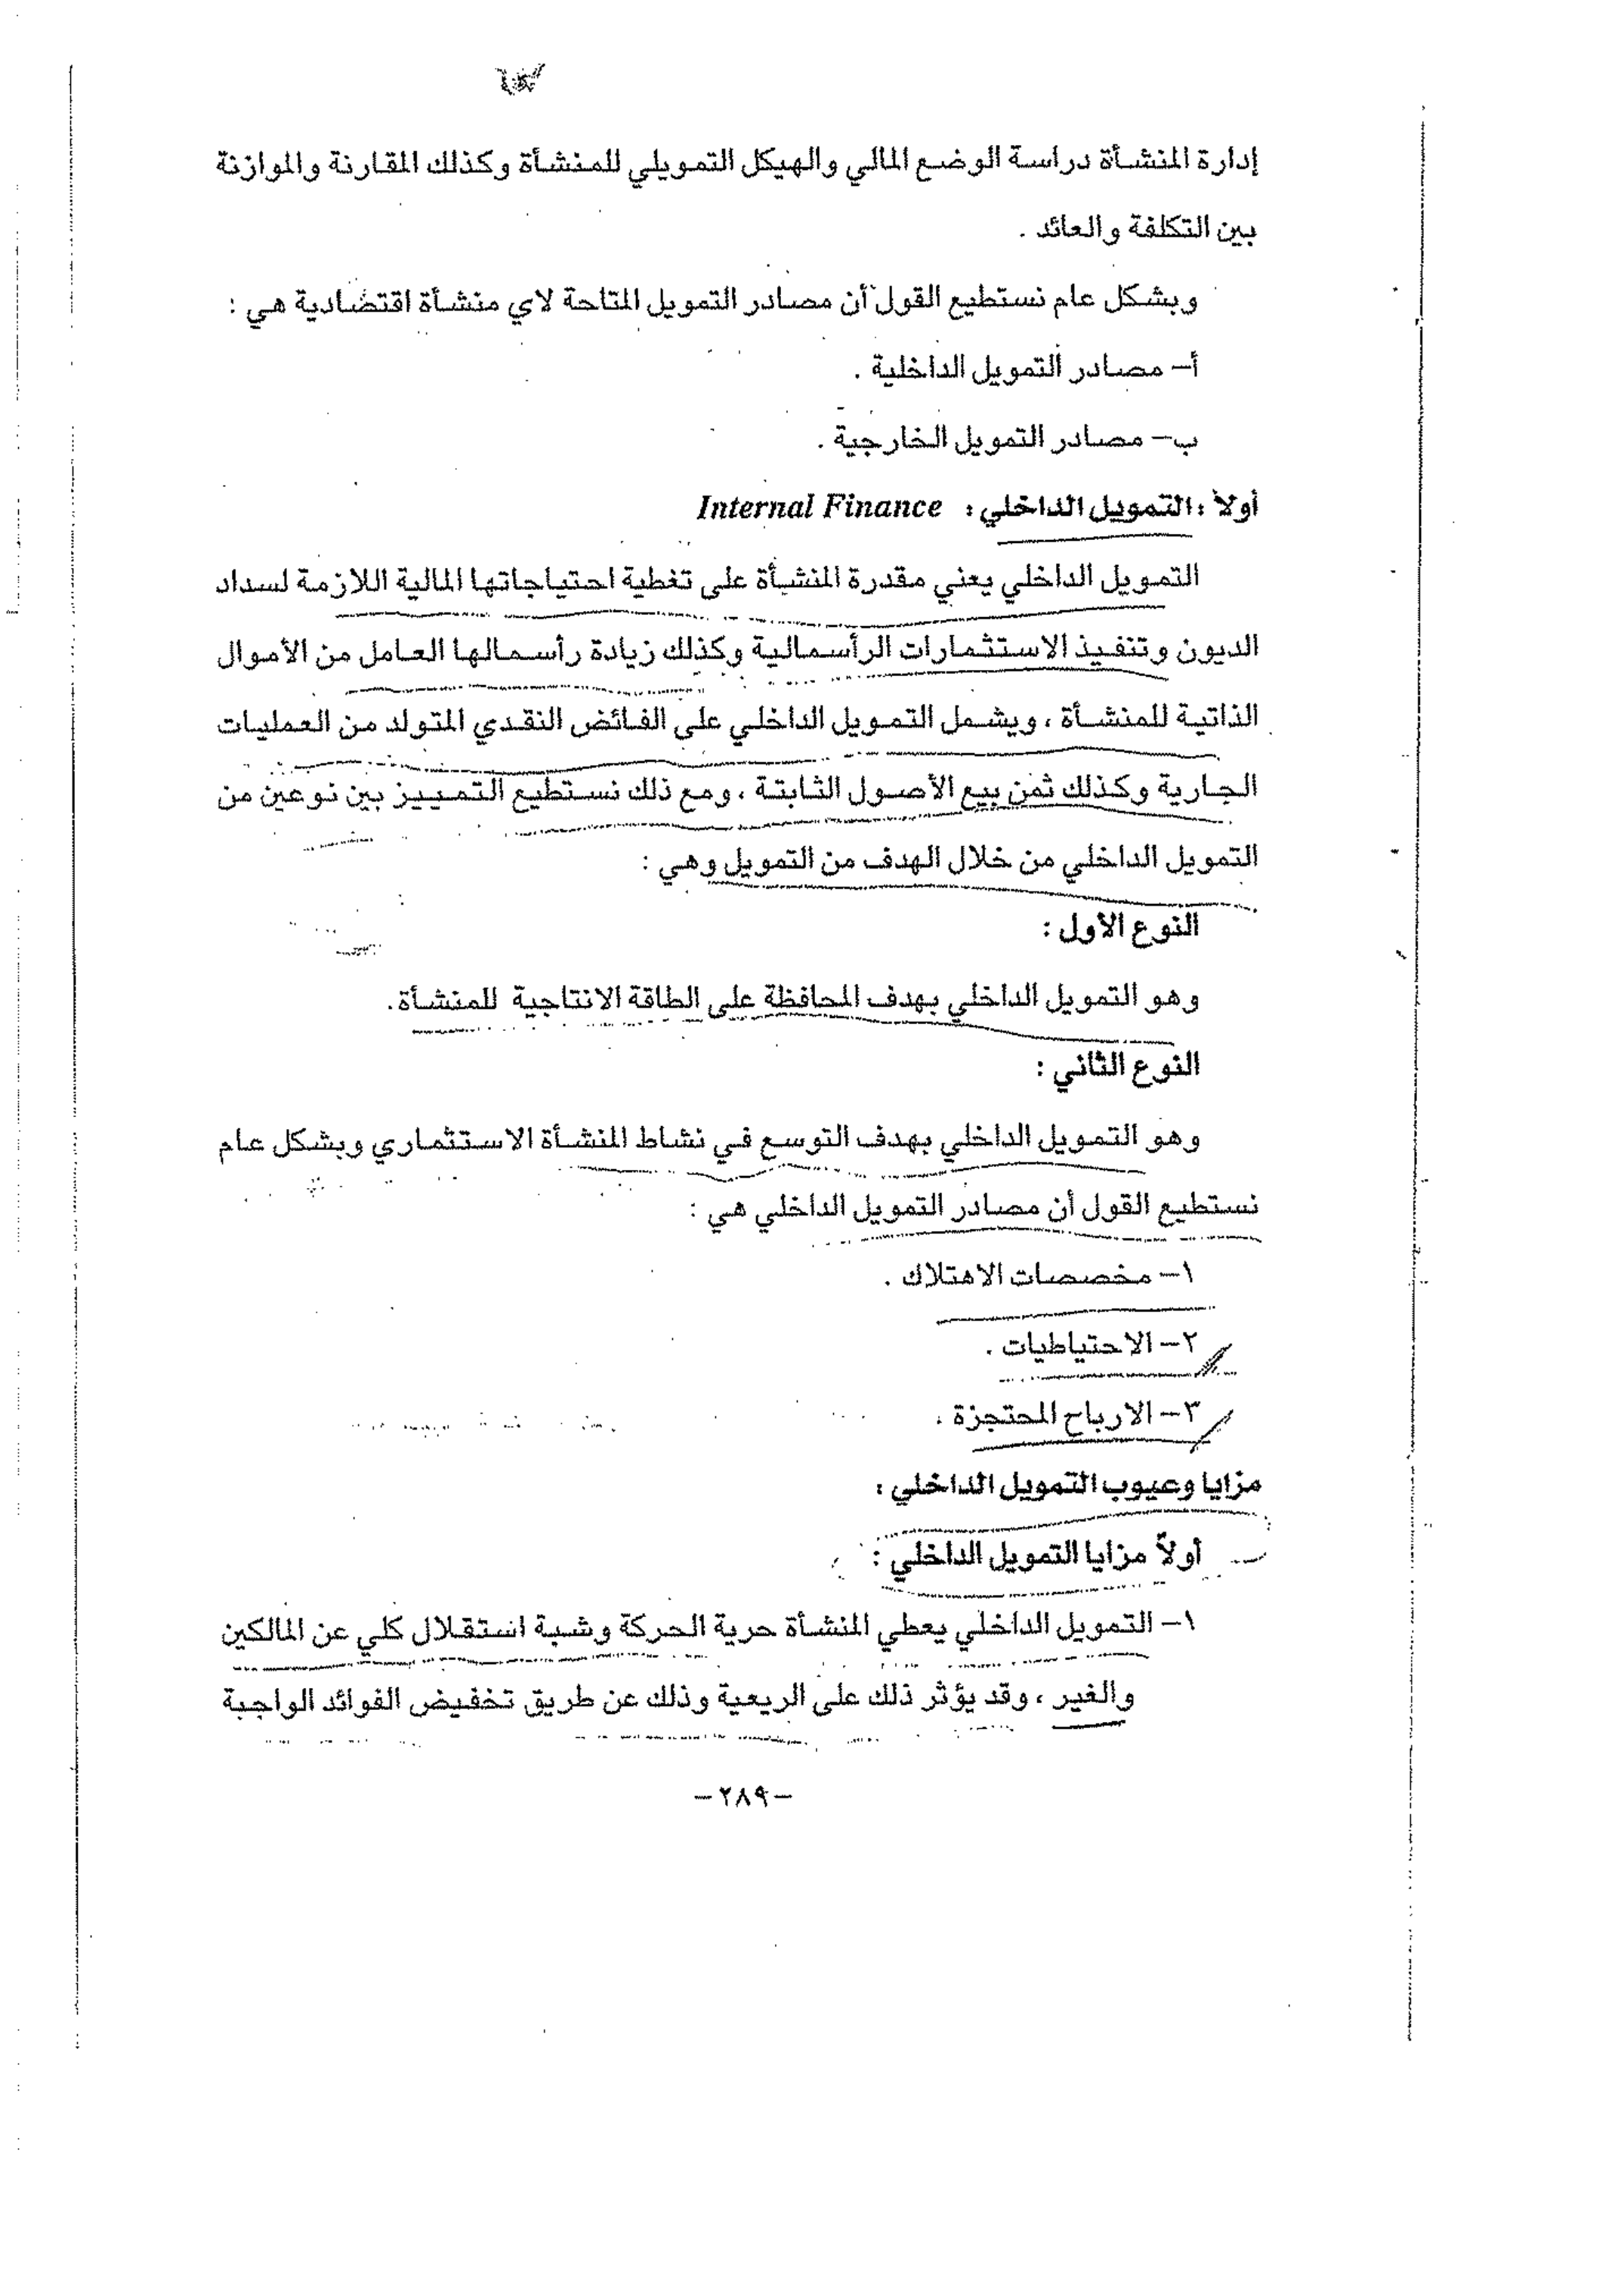 إدارة المنشأة دراسة الوضع المالي والهيكل التمويلي للمنشأة وكذلك المقارنة والموازنة
بين التكلفة والعائد .
وبشكل عام نستطيع القول أن مصادر التمويل المتاحة لاي منشأة اقتصادية هي :
أ– مصادر التمويل الداخلية .
ب– مصادر التمويل الخارجية .
أولاً : التمويل الداخلي : Internal Finance
التمويل الداخلي يعني مقدرة المنشأة على تغطية احتياجاتها المالية اللازمة لسداد
الديون وتنفيذ الاستثمارات الرأسمالية وكذلك زيادة رأسمالها العامل من الأموال
الذاتية للمنشأة ، ويشمل التمويل الداخلي على الفائض النقدي المتولد من العمليات
الجارية وكذلك ثمن بيع الأصول الثابتة ، ومع ذلك نستطيع التمييز بين نوعين من
التمويل الداخلي من خلال الهدف من التمويل وهي :
النوع الأول :
وهو التمويل الداخلي بهدف المحافظة على الطاقة الانتاجية للمنشأة.
النوع الثاني :
وهو التمويل الداخلي بهدف التوسع في نشاط المنشأة الاستثماري وبشكل عام
نستطيع القول أن مصادر التمويل الداخلي هي :
١– مخصصات الاهتلاك .
٢– الاحتياطيات .
٣– الارباح المحتجزة .
مزايا وعيوب التمويل الداخلي :
أولاً مزايا التمويل الداخلي :
١– التمويل الداخلي يعطي المنشأة حرية الحركة وشبة استقلال كلي عن المالكين
والغير ، وقد يؤثر ذلك على الريعية وذلك عن طريق تخفيض الفوائد الواجبة
–٢٨٩–